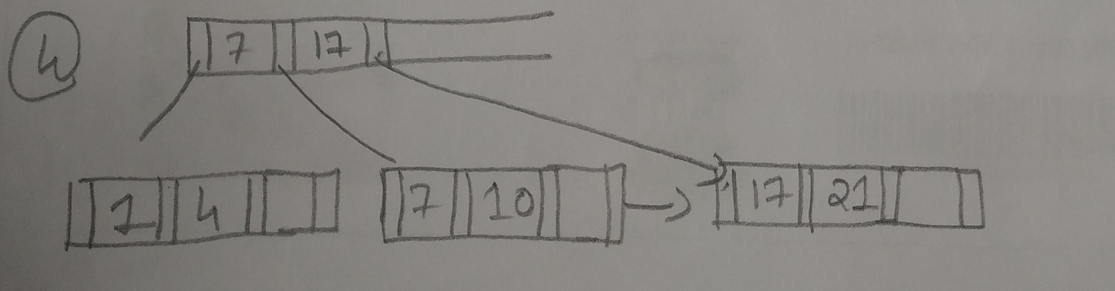 4
7 17
1 4 7 10 17 21